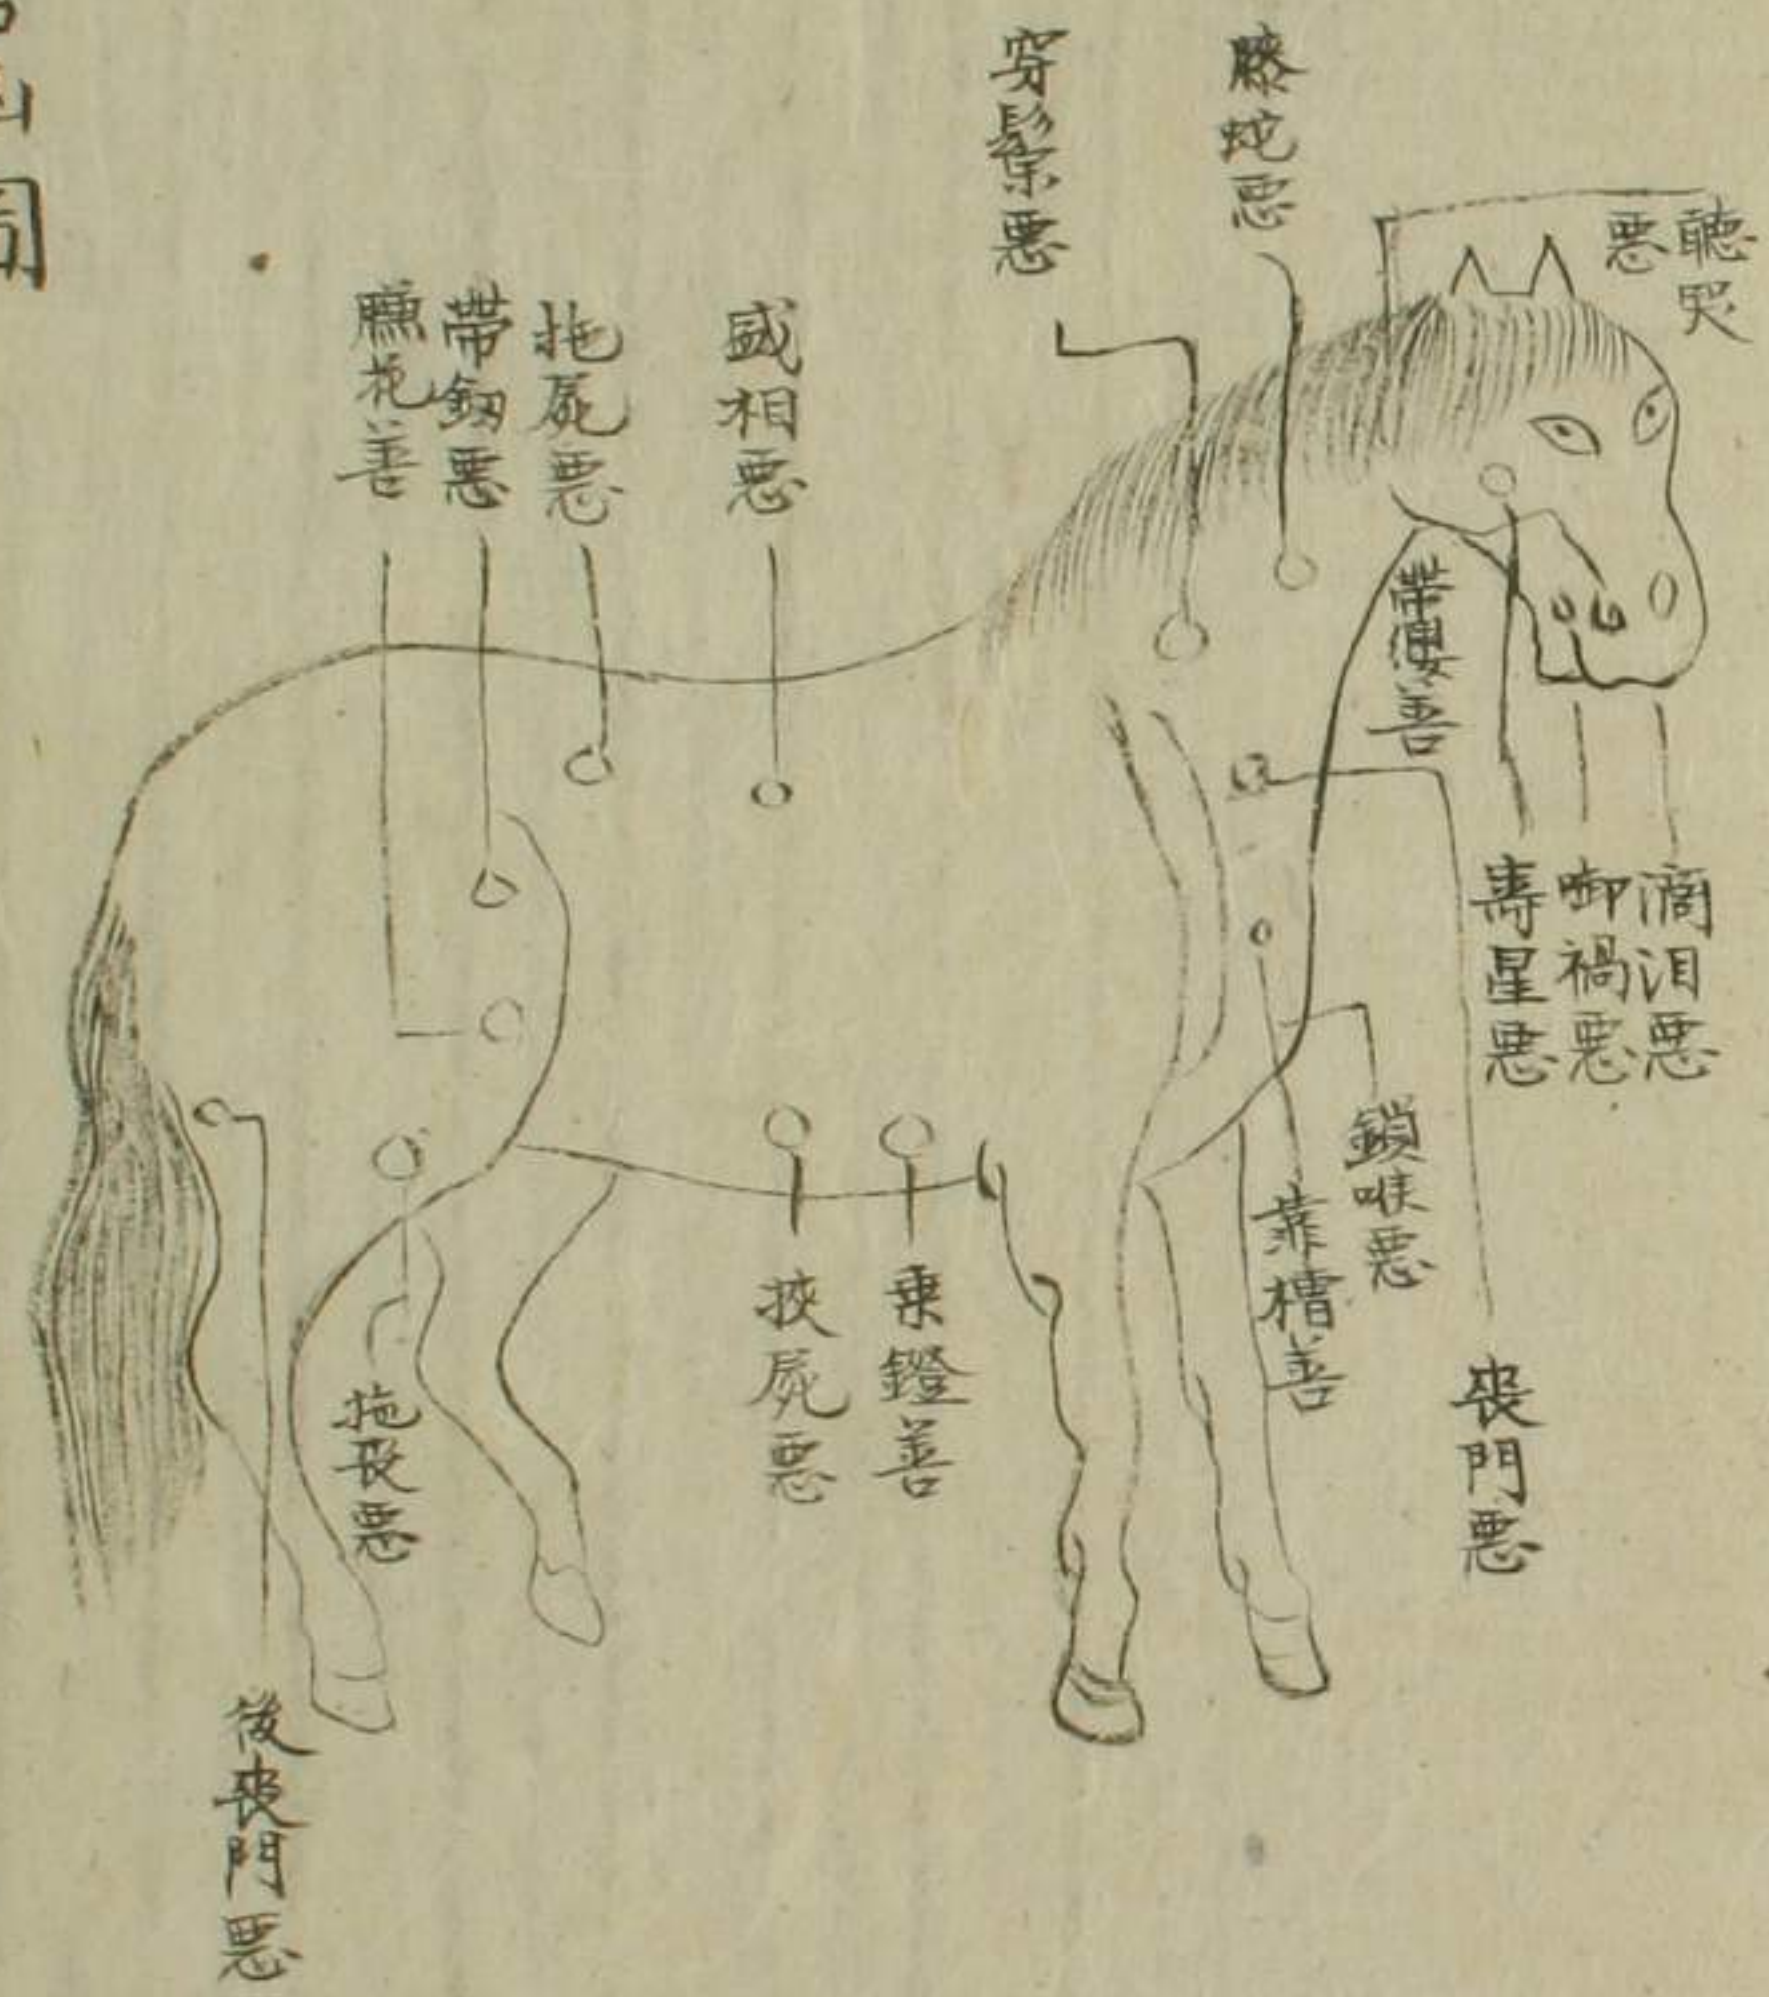 聽哭
惡
螣蛇惡
穿鬃惡
盛相惡
拖屍惡
帶劔惡
臕花善
帶纓善
滴泪惡
啣禍惡
壽星惡
鎖喉惡
喪門惡
靠槽善
乗鐙善
挾屍惡
拖喪惡
後喪門惡
圖